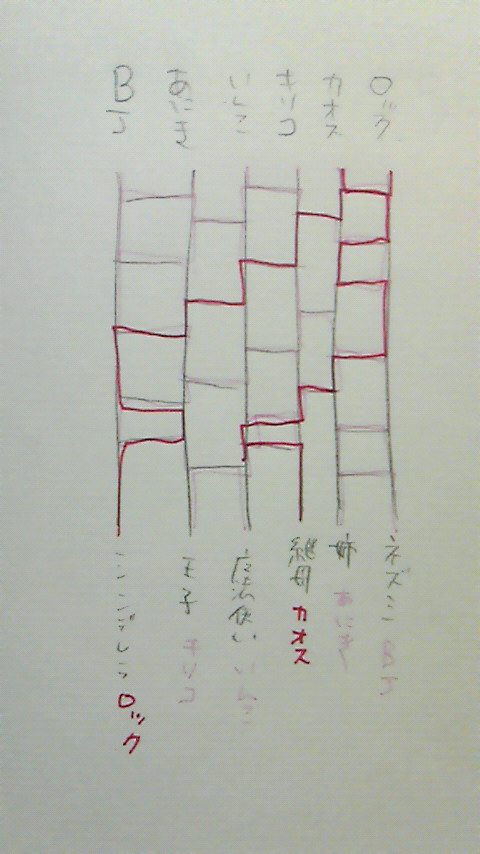 BJ
あにき
いんこ
キリコ
カオス
ロック
シンデレラ ロック
王子 キリコ
魔法使い いんこ
継母 カオス
姉 あにき
ネズミ BJ